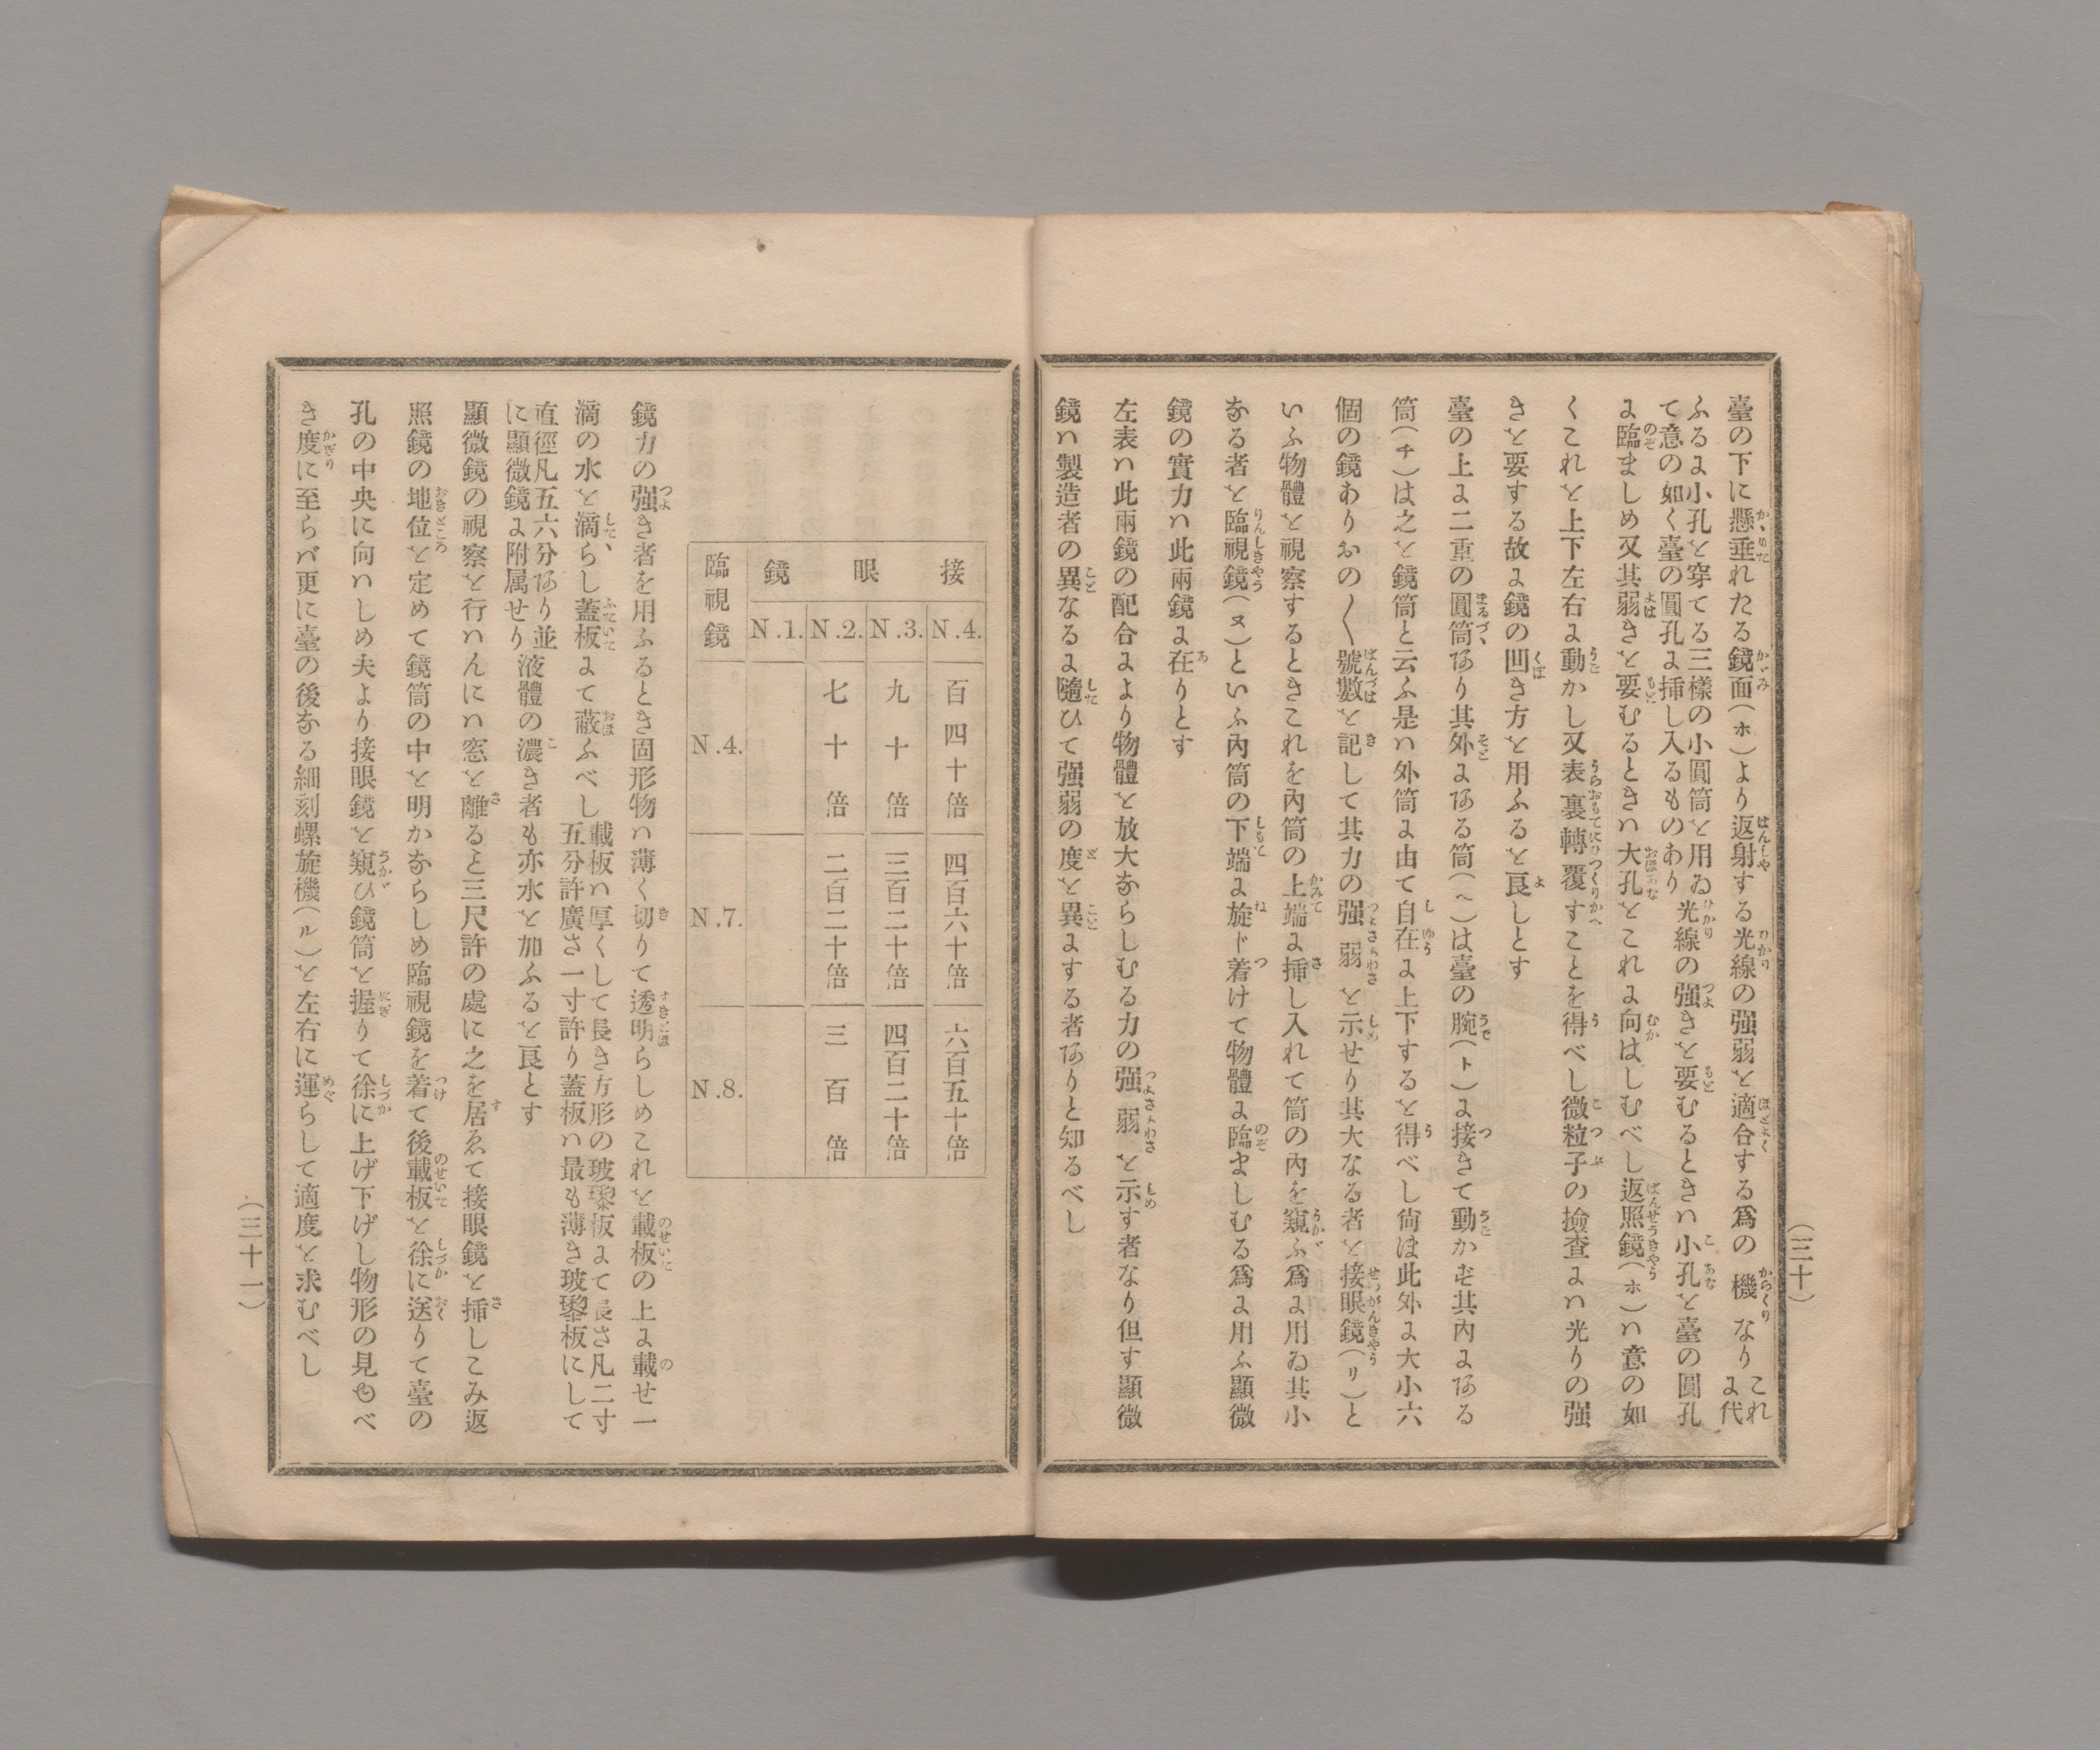 臺の下に懸垂れたる鏡面(ホ)より返射する光線の强弱を適合する爲の機なり これに代
ふるに小孔を穿てる三樣の小圓筒を用ゐ
て意の如く臺の圓孔に揷し入るものあり
光線の强きを要むるときハ小孔を臺の圓孔
に臨ましめ又其弱きを要むるときハ大孔をこれに向はしむべし返照鏡(ホ)ハ意の如
くこれを上下左右に動かし又表裏轉覆すことを得べし微粒子の撿査にハ光りの强
きを要する故に鏡の凹き方を用ふるを良しとす
臺の上に二重の圓筒あり其外にある筒(ヘ)は臺の腕(ト)に接きて動かず其内にある
筒(チ)は之を鏡筒と云ふ是ハ外筒に由て自在に上下するを得べし尙ほ此外に大小六
個の鏡ありおの〱號數を記して其力の强弱を示せり其大なる者を接眼鏡(リ)と
いふ物體を視察するときこれを内筒の上端に揷し入れて筒の内を窺ふ爲に用ゐ其小
なる者を臨視鏡(ヌ)といふ内筒の下端に旋ド着けて物體に臨ましむる爲に用ふ顯微
鏡の實力ハ此兩鏡に在りとす
左表ハ此兩鏡の配合により物體を放大ならしむる力の强弱を示す者なり但す顯微
鏡ハ製造者の異なるに隨ひて强弱の度を異にする者ありと知るべし
(三十)
接眼鏡
臨視鏡
N.4.
N.3.
N.2.
N.1.
百四十倍
九十倍
七十倍
N.4.
四百六十倍
三百二十倍
二百二十倍
N.7.
六百五十倍
四百二十倍
三百倍
N.8.
鏡力の强き者を用ふるとき固形物ハ薄く切りて透明らしめこれを載板の上に載せ一
滴の水を滴らし蓋板にて蔽ふべし
載板ハ厚くして長き方形の玻瓈板にて長さ凡二寸
五分許廣さ一寸許り蓋板ハ最も薄き玻瓈板にして
直徑凡五六分あり並
に顯微鏡に附属せり
液體の濃き者も亦水を加ふるを良とす
顯微鏡の視察を行ハんにハ窓を離ると三尺許の處に之を居ゑて接眼鏡を揷しこみ返
照鏡の地位を定めて鏡筒の中を明かならしめ臨視鏡を着て後載板を徐に送りて臺の
孔の中央に向ハしめ夫より接眼鏡を窺ひ鏡筒を握りて徐に上げ下げし物形の見ゆべ
き度に至らバ更に臺の後なる細刻螺旋機(ル)を左右に運らして適度を求むべし
(三十一)